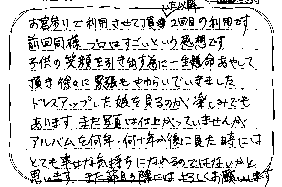 お宮参りで利用させて頂き2回目の利用です
前回同様プロはすごいという感想です
子供の笑顔を引き出す為に一生懸命あやして
頂き徐々に緊張もやわらいでいきました
ドレスアップした娘を見るのが楽しみでも
あります まだ写真は仕上がっていませんが
アルバムを何年・何十年か後に見た時には
とても幸せな気持ちになれるのではないかと
思います また節目の際にはよろしくお願いします